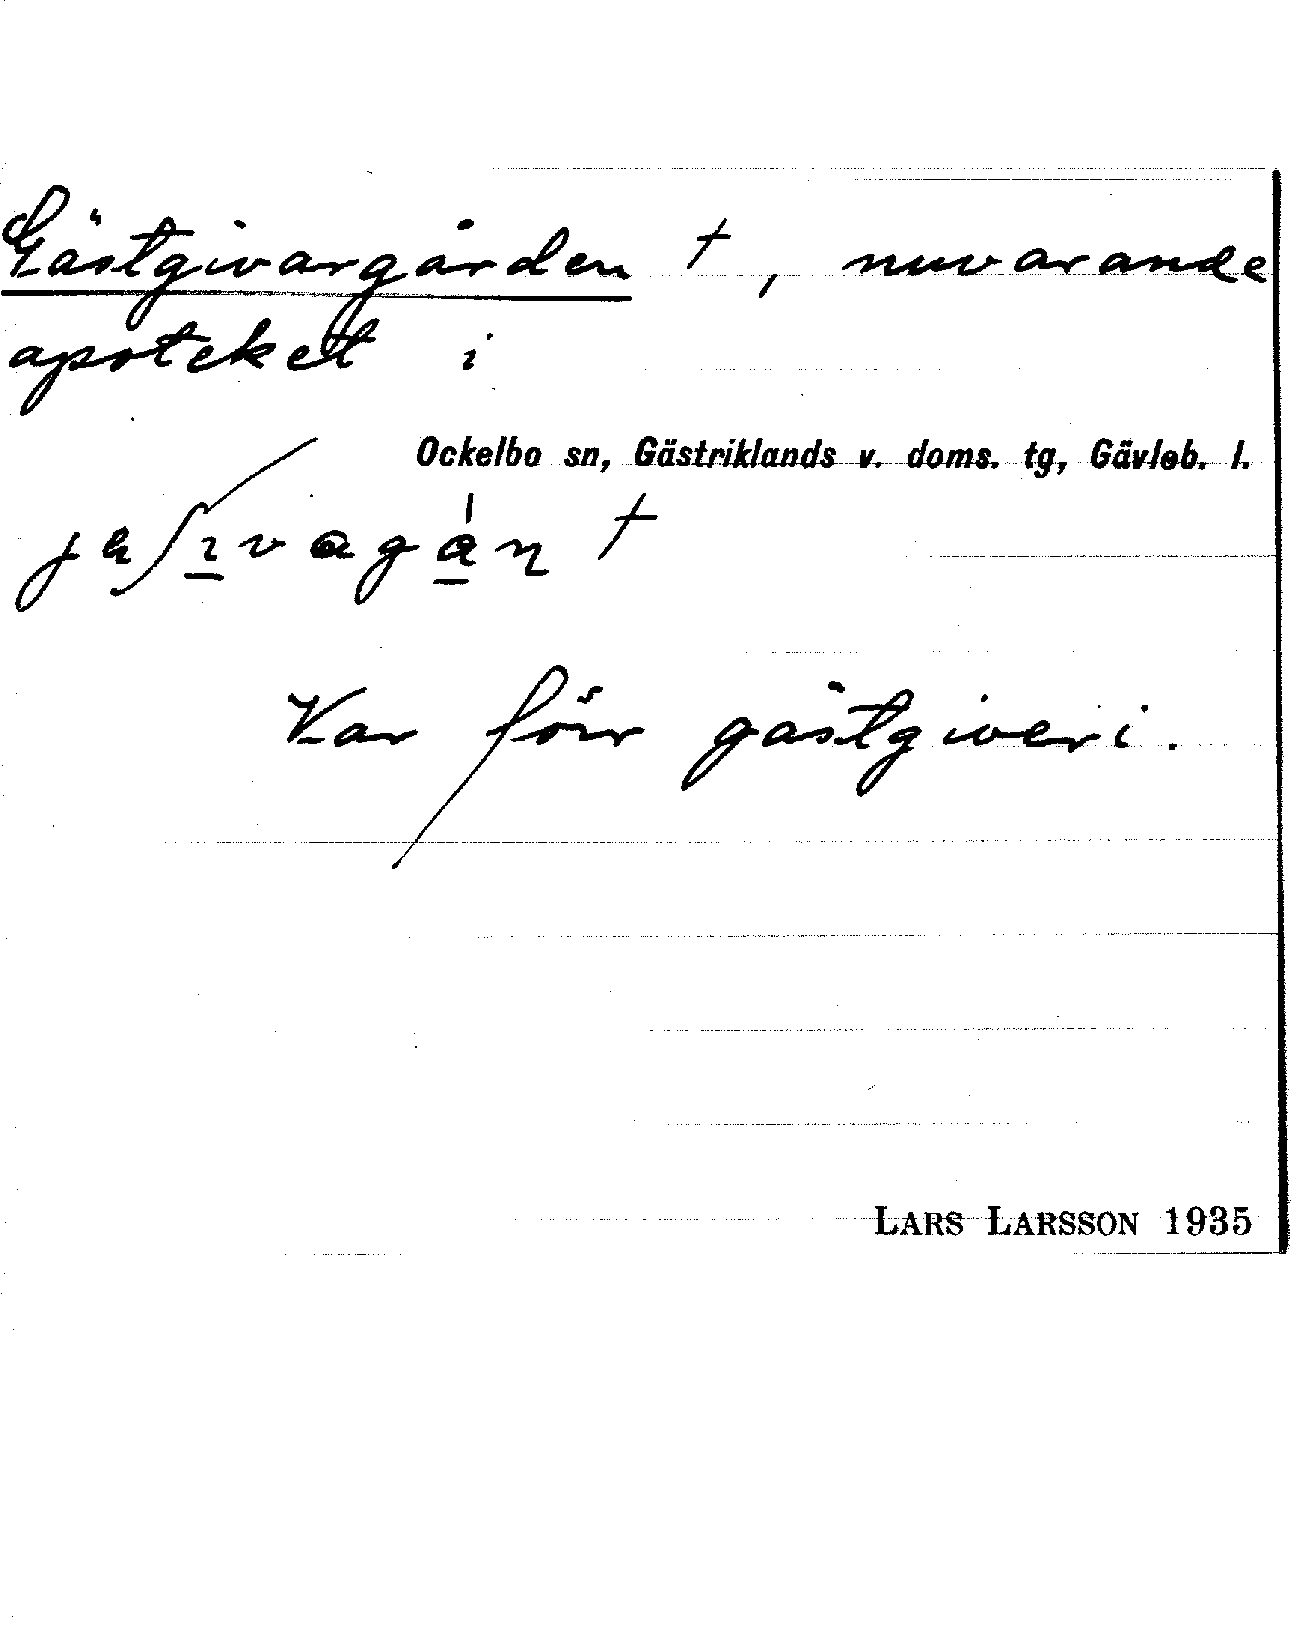 Gästgivargården †, nuvarande
apoteket i
Ockelbo sn, Gästriklands v. doms. tg, Gävleb. l.
Var förr gästgiveri.
LARS LARSSON 1935